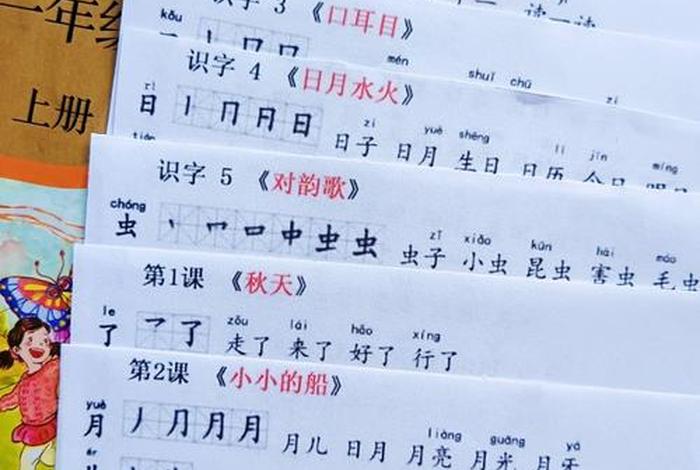 年级
上册
识字 3 《口耳目》
kǒu
mén
识字 4 《日月水火》
shuǐ chū zi
rì
日 丨 冂 日 日
zi yuè shēng lì jīn míng
日子 日月 生日 日历 今日
识字 5 《对韵歌》
chóng
虫 丶 冖 口 中 虫 虫
zǐ xiǎo kūn hài máo
虫子 小虫 昆虫 害虫 毛虫
第1课 《秋天》
le
了 乛 了
zǒu lái hǎo xíng
走了 来了 好了 行了
第2课 《小小的船》
yuè
月 丿 ⺆ 月 月
liàng guāng yá
月儿 日月 月亮 月光 月牙
ér